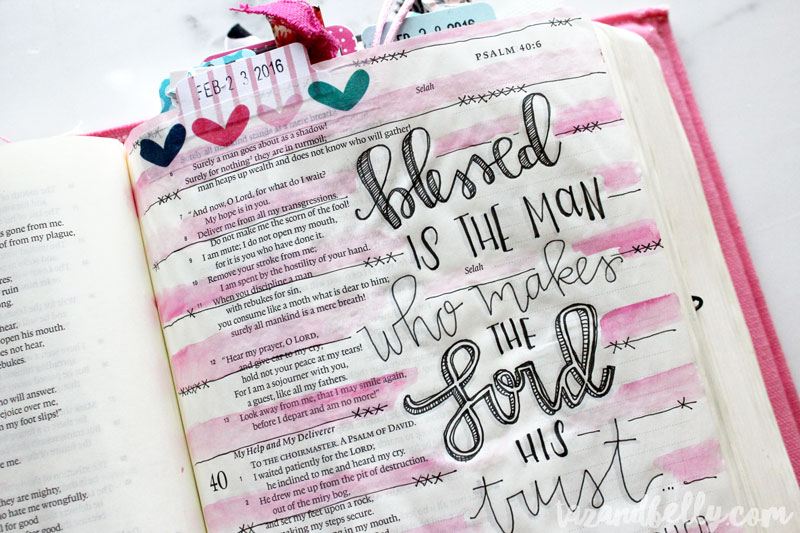 FEB 2 8 2016
FEB-2 3 2016
PSALM 40:6
Selah
6 Surely a man goes about as a shadow!
Surely for nothing they are in turmoil;
man heaps up wealth and does not know who will gather!
7 "And now, O Lord, for what do I wait?
My hope is in you.
8 Deliver me from all my transgressions.
Do not make me the scorn of the fool!
9 I am mute; I do not open my mouth,
for it is you who have done it.
10 Remove your stroke from me;
I am spent by the hostility of your hand.
11 When you discipline a man
with rebukes for sin,
you consume like a moth what is dear to him;
surely all mankind is a mere breath!
Selah
12 "Hear my prayer, O LORD,
and give ear to my cry;
hold not your peace at my tears!
For I am a sojourner with you,
a guest, like all my fathers.
13 Look away from me, that I may smile again,
before I depart and am no more!"
My Help and My Deliverer
TO THE CHOIRMASTER. A PSALM OF DAVID.
40 1 I waited patiently for the LORD;
he inclined to me and heard my cry.
2 He drew me up from the pit of destruction,
out of the miry bog,
and set my feet upon a rock,
making my steps secure.
3 He put a new song in my mouth,
blessed
IS THE MAN
who makes
THE
Lord
HIS
trust...
is gone from me.
of from my plague,
ruin
long.
hear,
open his mouth.
does not hear,
rebukes.
who will answer.
rejoice over me,
my foot slips!"
they are mighty,
who hate me wrongfully.
for good
good.
lizandbelly.com